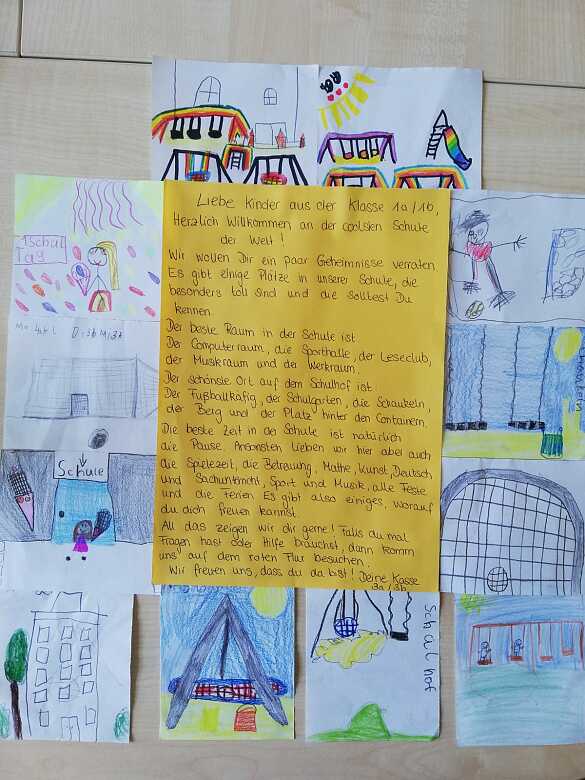 Liebe Kinder aus der Klasse 1a/1b,
Herzlich Willkommen an der coolsten Schule
der Welt!
Wir wollen Dir ein paar Geheimnisse verraten.
Es gibt einige Plätze in unserer Schule, die
besonders toll sind und die solltest Du
kennen.
Der beste Raum in der Schule ist
Der Computerraum, die Sporthalle, der Leseclub,
der Musikraum und der Werkraum.
Der schönste Ort auf dem Schulhof ist
Der Fußballkäfig, der Schulgarten, die Schaukeln,
der Berg und der Platz hinter den Containern.
Die beste Zeit in der Schule ist natürlich
die Pause. Ansonsten lieben wir hier aber auch
die Spielezeit, die Betreuung, Mathe, Kunst, Deutsch
und Sachunterricht, Sport und Musik, alle Feste
und die Ferien Es gibt also einiges, worauf
du dich freuen kannst.
All das zeigen wir dir gerne! Falls du mal
Fragen hast oder Hilfe brauchst, dann komm
uns auf dem roten Flur besuchen.
Wir freuen uns, dass du da bist! Deine Kasse
3a/3b
1 Schul
Tag
Schule
Schulhof